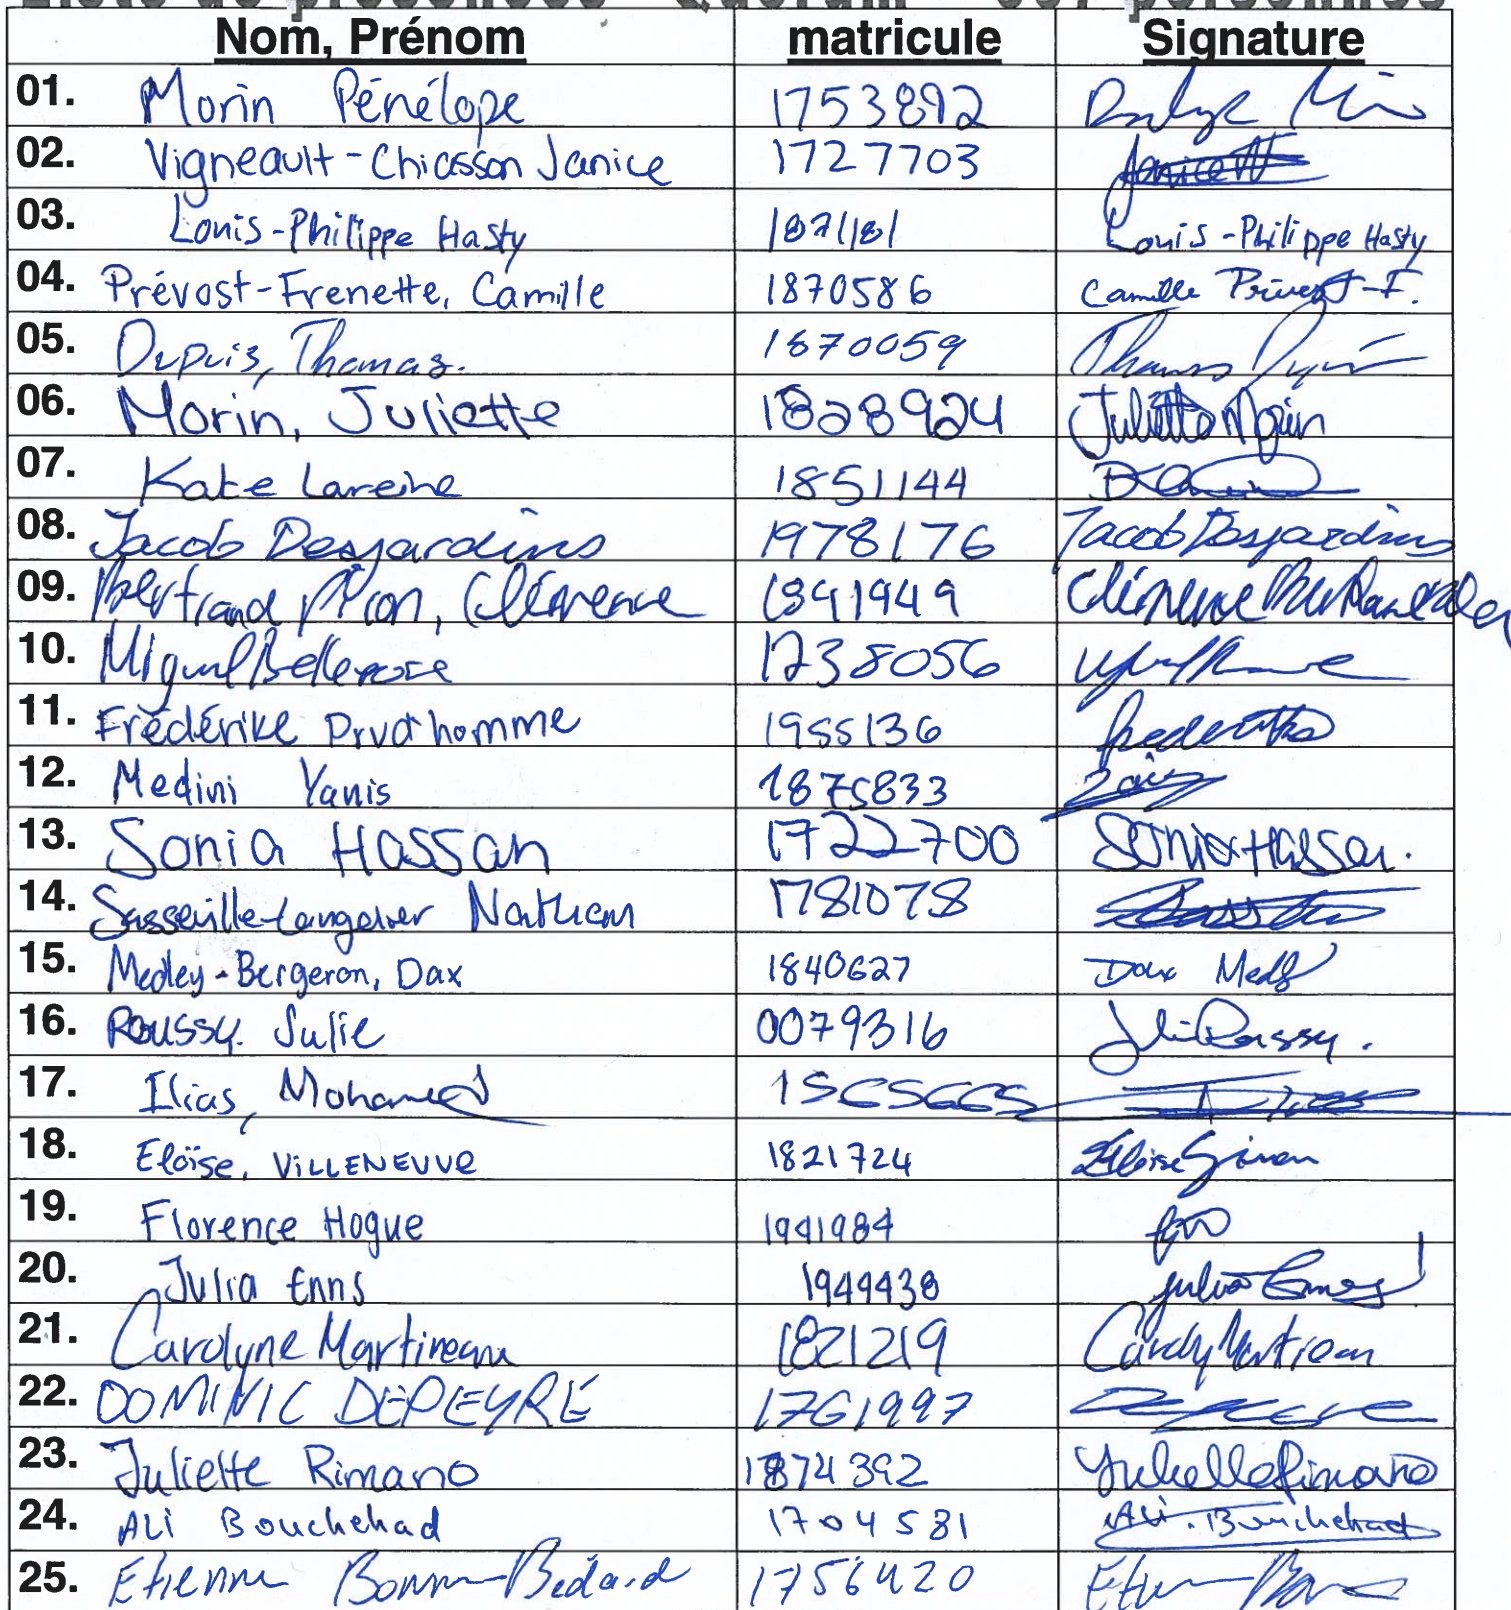 Liste de présences - Quorum personnes
Nom, Prénom matricule Signature
01. Morin Pénélope 1753892
02. Vigneault-Chiasson Janice 1727703
03. Louis-Philippe Hasty 1871181 Louis-Philippe Hasty
04. Prévost-Frenette, Camille 1870586 Camille Prévost-F.
05. Dupuis, Thomas. 1870059 Thomas
06. Morin, Juliette 1828924 Juliette Morin
07. Kate Lareine 1851144
08. Jacob Desjardins 1978176 Jacob Desjardins
09. Bertrand Pion, Clémence 1841949 Clémence
10. Miguel Bellerose 1738056
11. Frédérike Prud'homme 1955136
12. Medini Yanis 1875833
13. Sonia Hassan 1722700 Sonia Hassan.
14. Sasseville-Langelier Nathan 1781078
15. Medley-Bergeron, Dax 1840627 Dax
16. Roussy. Julie 0079316 Julie Roussy.
17. Ilias, Mohamed
18. Eloïse, VILLENEUVE 1821724 Eloïse
19. Florence Hogue 1941984
20. Julia Enns 1944438 Julia Enns
21. Carolyne Martineau 1821219
22. DOMINIC DEPEYRE 1761997
23. Juliette Rimano 1874392 Juliette Rimano
24. Ali Bouchehad 1704581 Ali. Bouchehad
25. Etienne Bonin-Bédard 1756420